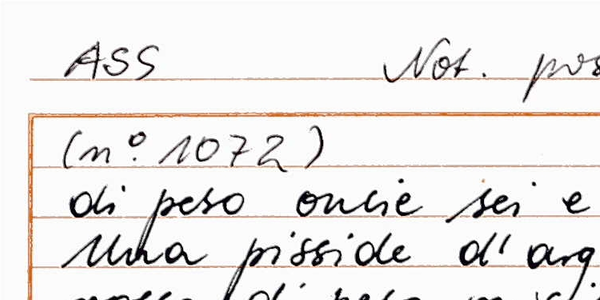 ASS Not.
(nº. 1072)
di peso oncie sei e
Una pisside d'arg
di peso